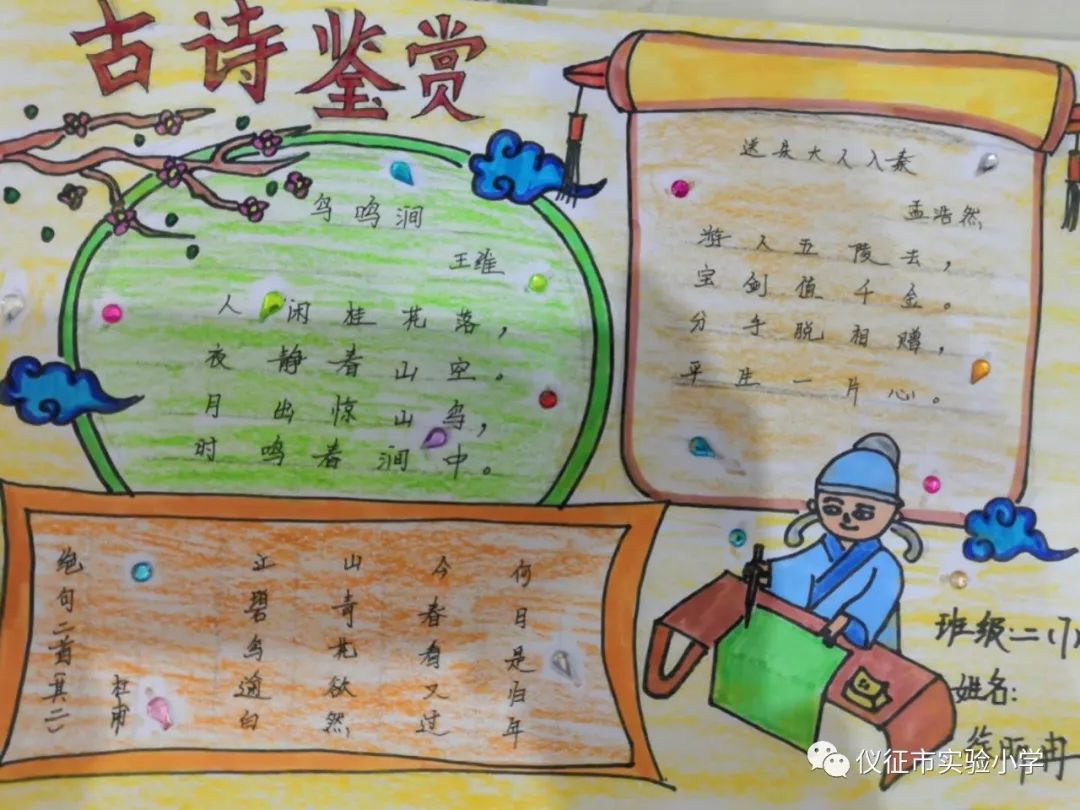 古诗鉴赏
鸟鸣涧
王维
人闲桂花落，
夜静春山空。
月出惊山鸟，
时鸣春涧中。
送朱大人入秦
孟浩然
游人五陵去，
宝剑值千金。
分手脱相赠，
平生一片心。
绝句二首（其二）
杜甫
江碧鸟逾白
山青花欲然
今春看又过
何日是归年
班级:二(7)
姓名:
仪征市实验小学